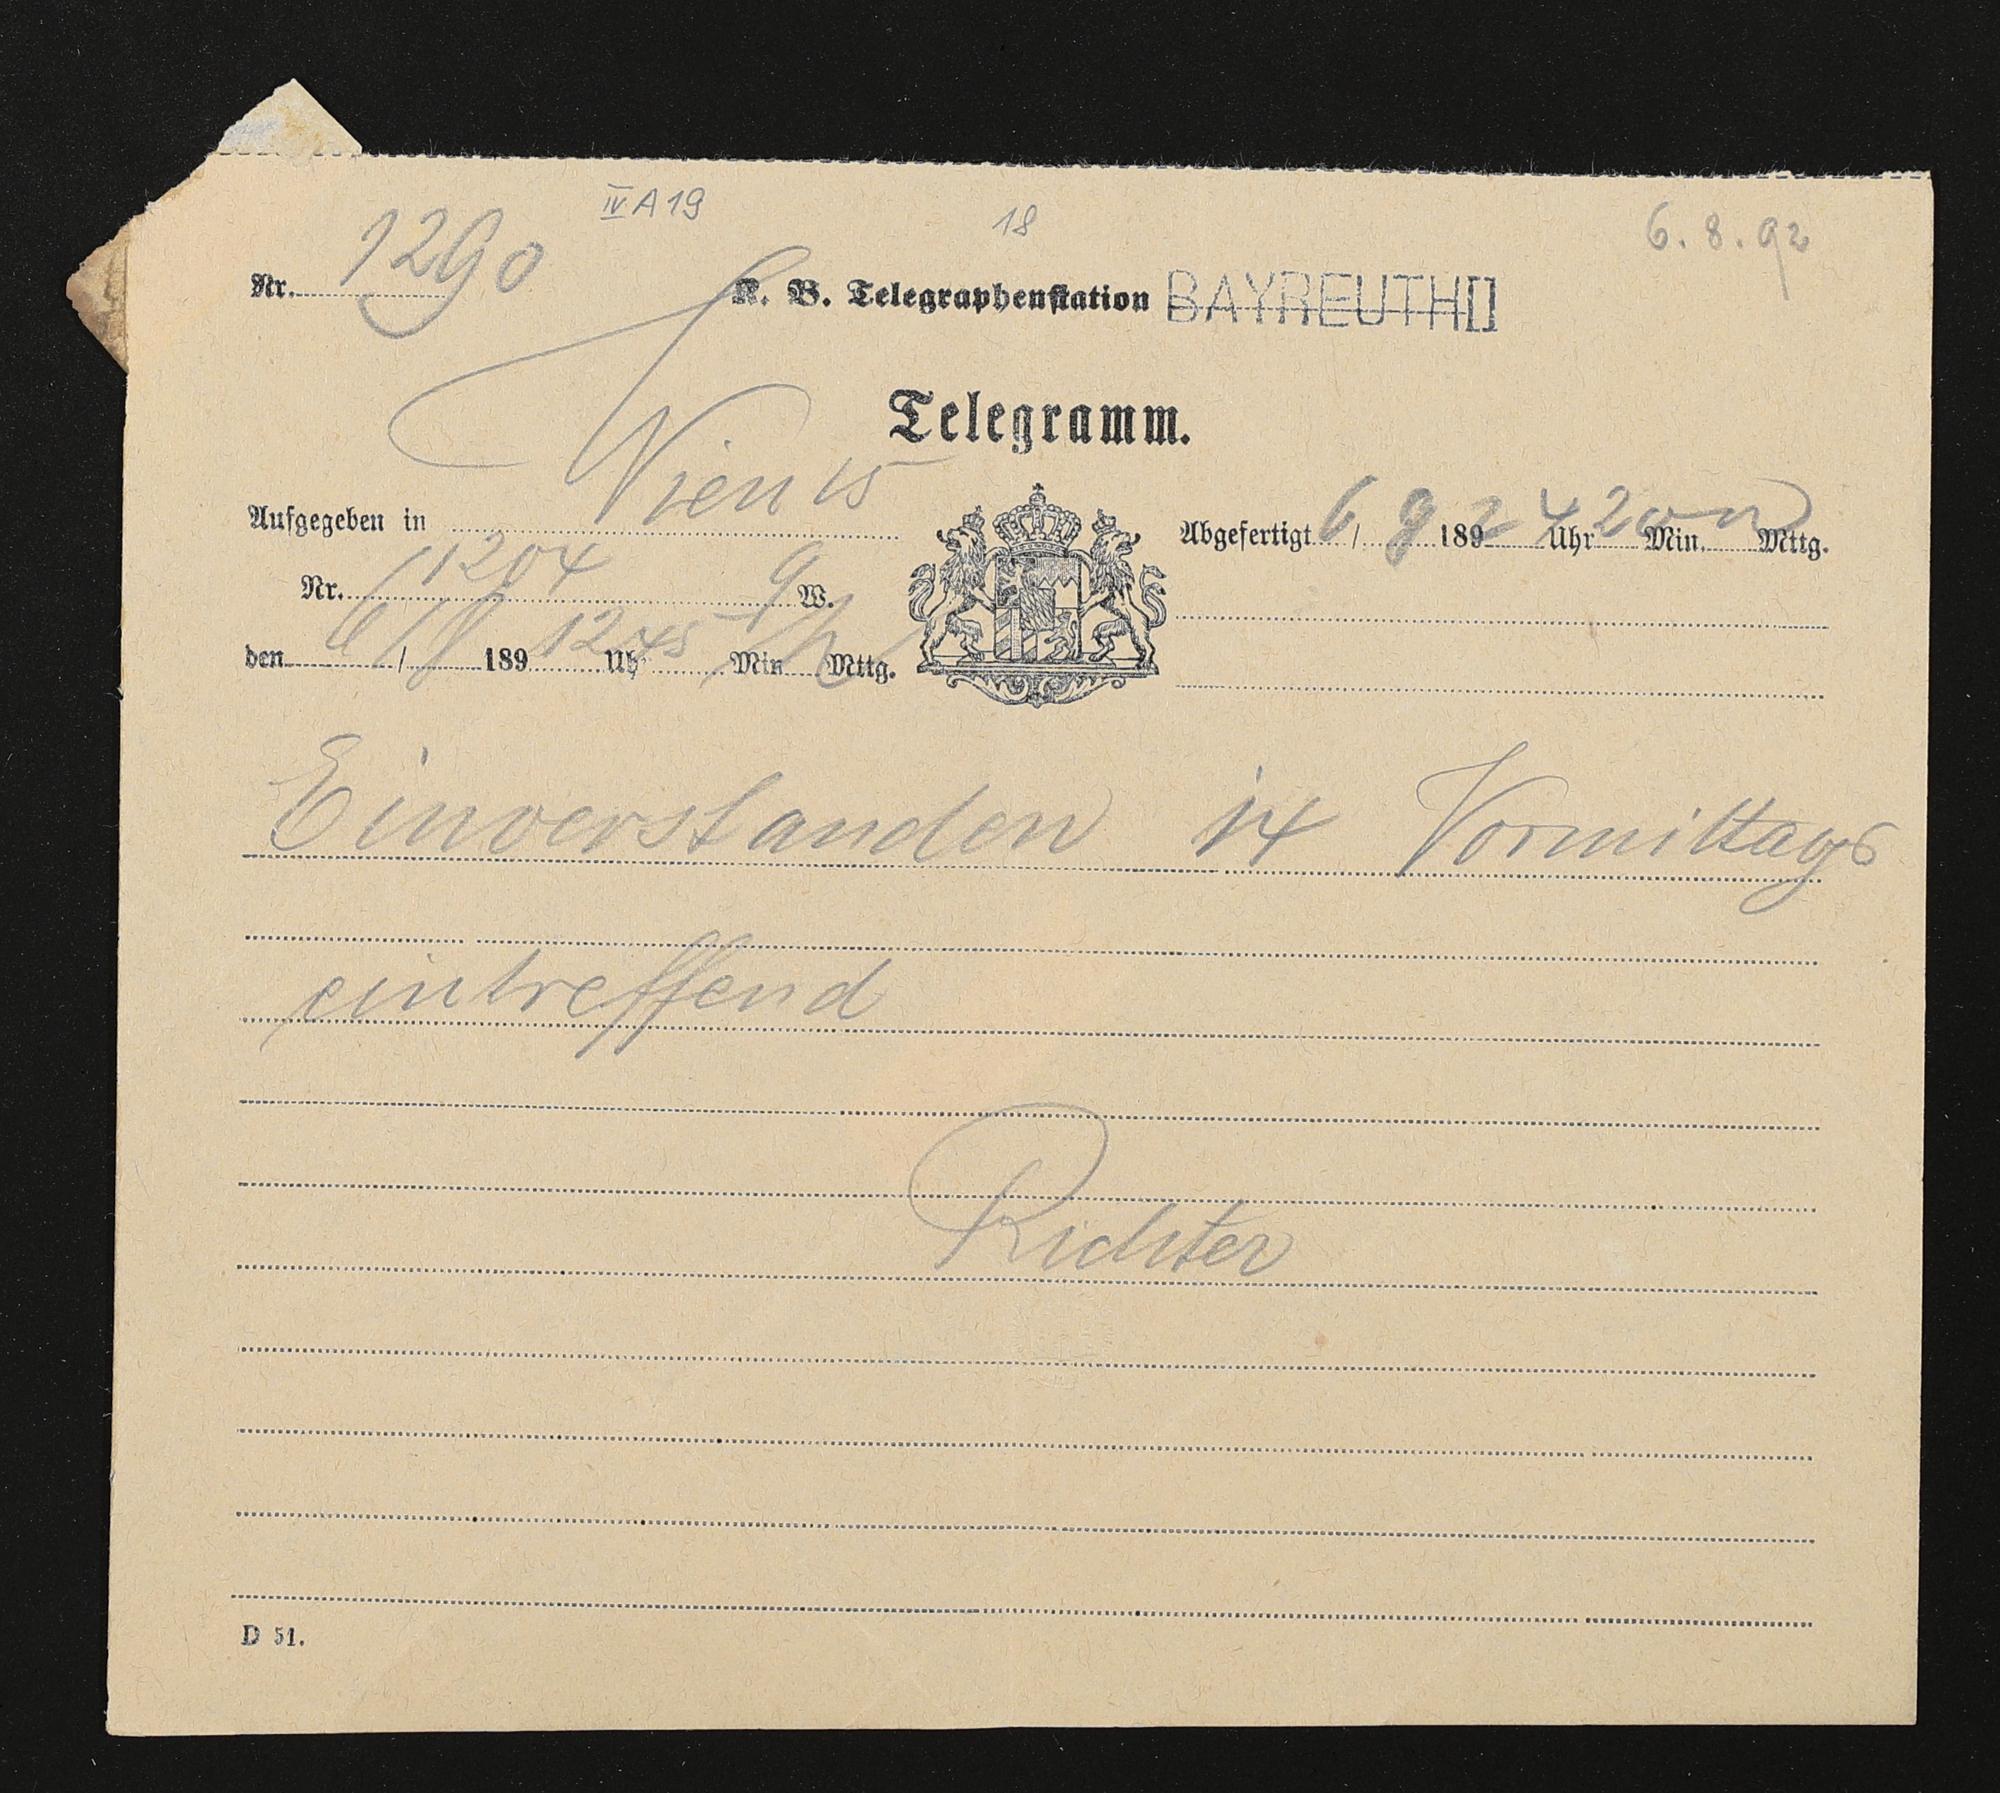 IV A 19
18
6. 8. 92
Nr. 1290
K. B. Telegraphenstation BAYREUTH II
Telegramm.
Aufgegeben in Wien 15
Abgefertigt 6 / 8 1892 4 Uhr 20 Min. Mttg.
Nr. 11204 9 W.
den 6 / 8 189 12 Uhr 45 Min Mttg.
Einverstanden 14 Vormittags
eintreffend
Richter
D 51.